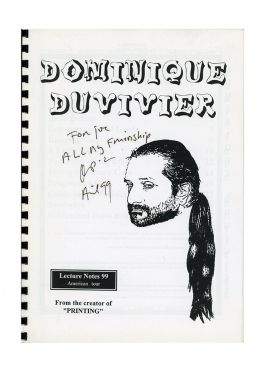 DOMINIQUE
DUVIVIER
For Joe
ALL My
Lecture Notes 99
American tour
From the creator of
"PRINTING"